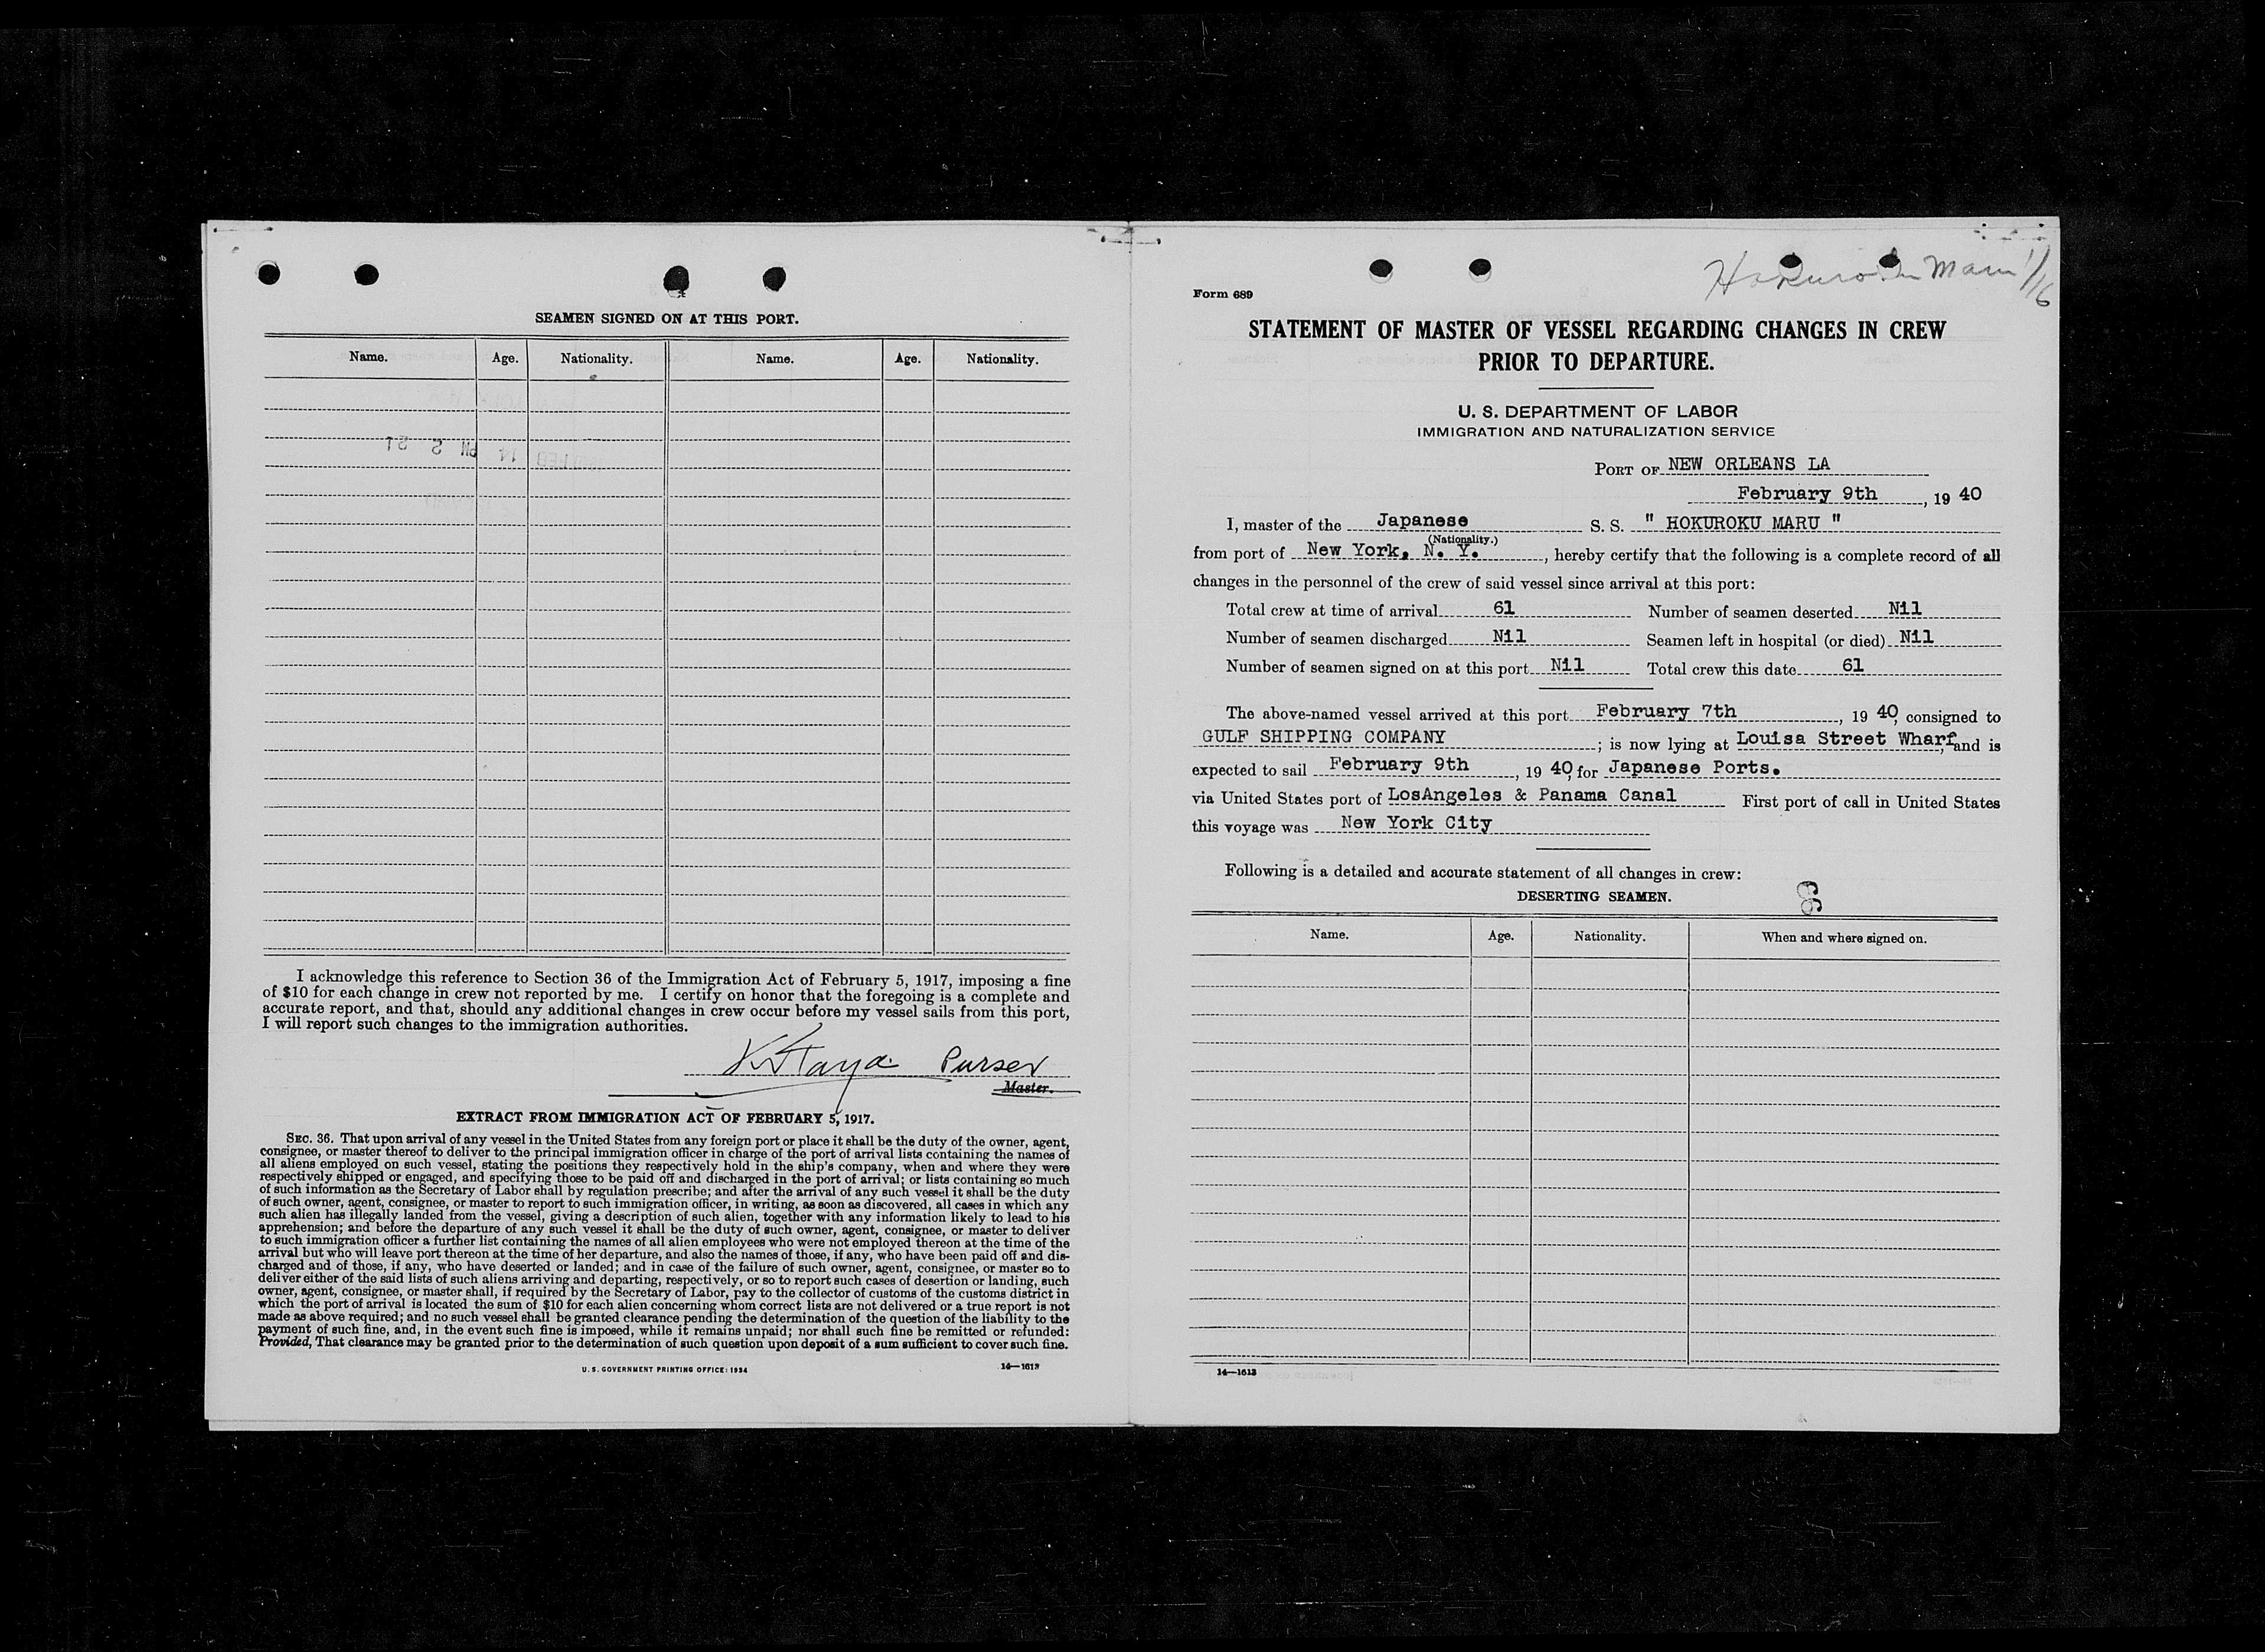 SEAMEN SIGNED ON AT THIS PORT.
Name. Age. Nationality. Name. Age. Nationality.
I acknowledge this reference to Section 36 of the Immigration Act of February 5, 1917, imposing a fine
of $10 for each change in crew not reported by me. I certify on honor that the foregoing is a complete and
accurate report, and that, should any additional changes in crew occur before my vessel sails from this port,
I will report such changes to the immigration authorities.
Purser
Master.
EXTRACT FROM IMMIGRATION ACT OF FEBRUARY 5, 1917.
SEC. 36. That upon arrival of any vessel in the United States from any foreign port or place it shall be the duty of the owner, agent,
consignee, or master thereof to deliver to the principal immigration officer in charge of the port of arrival lists containing the names of
all aliens employed on such vessel, stating the positions they respectively hold in the ship's company, when and where they were
respectively shipped or engaged, and specifying those to be paid off and discharged in the port of arrival; or lists containing so much
of such information as the Secretary of Labor shall by regulation prescribe; and after the arrival of any such vessel it shall be the duty
of such owner, agent, consignee, or master to report to such immigration officer, in writing, as soon as discovered, all cases in which any
such alien has illegally landed from the vessel, giving a description of such alien, together with any information likely to lead to his
apprehension; and before the departure of any such vessel it shall be the duty of such owner, agent, consignee, or master to deliver
to such immigration officer a further list containing the names of all alien employees who were not employed thereon at the time of the
arrival but who will leave port thereon at the time of her departure, and also the names of those, if any, who have been paid off and dis-
charged and of those, if any, who have deserted or landed; and in case of the failure of such owner, agent, consignee, or master so to
deliver either of the said lists of such aliens arriving and departing, respectively, or so to report such cases of desertion or landing, such
owner, agent, consignee, or master shall, if required by the Secretary of Labor, pay to the collector of customs of the customs district in
which the port of arrival is located the sum of $10 for each alien concerning whom correct lists are not delivered or a true report is not
made as above required; and no such vessel shall be granted clearance pending the determination of the question of the liability to the
payment of such fine, and, in the event such fine is imposed, while it remains unpaid; nor shall such fine be remitted or refunded:
Provided, That clearance may be granted prior to the determination of such question upon deposit of a sum sufficient to cover such fine.
U. S. GOVERNMENT PRINTING OFFICE: 1934 14—1613
Maru 1/16
Form 689
STATEMENT OF MASTER OF VESSEL REGARDING CHANGES IN CREW
PRIOR TO DEPARTURE.
U. S. DEPARTMENT OF LABOR
IMMIGRATION AND NATURALIZATION SERVICE
PORT OF NEW ORLEANS LA
February 9th, 19 40
I, master of the Japanese S. S. " HOKUROKU MARU "
(Nationality.)
from port of New York, N. Y., hereby certify that the following is a complete record of all
changes in the personnel of the crew of said vessel since arrival at this port:
Total crew at time of arrival 61 Number of seamen deserted Nil
Number of seamen discharged Nil Seamen left in hospital (or died) Nil
Number of seamen signed on at this port Nil Total crew this date 61
The above-named vessel arrived at this port February 7th, 19 40, consigned to
GULF SHIPPING COMPANY; is now lying at Louisa Street Wharf, and is
expected to sail February 9th, 19 40, for Japanese Ports.
via United States port of LosAngeles & Panama Canal First port of call in United States
this voyage was New York City
Following is a detailed and accurate statement of all changes in crew:
DESERTING SEAMEN.
Name. Age. Nationality. When and where signed on.
14—1613